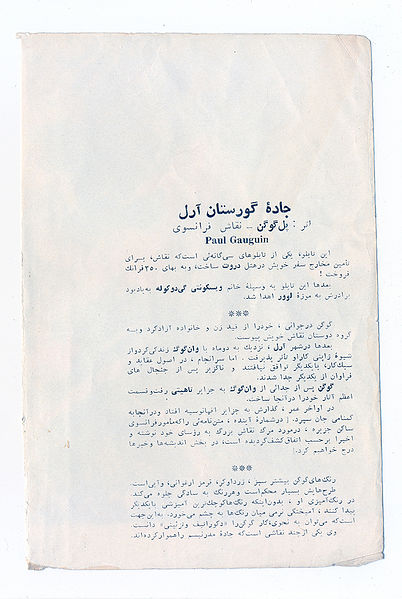 جادهٔ گورستان آرل
اثر : پل‌گوگن ــ نقاش فرانسوی
Paul Gauguin
این تابلو، یکی از تابلوهای سی‌گانه‌ئی است‌که نقاش، بسرای
تأمین مخارج سفر خویش درهتل دروت ساخت، وبه بهای ۳۵۰ فرانك
فروخت !
بعدها این تابلو به وسیلهٔ خانم ویسکونتی گی‌دوکوله به‌یادبود
برادرش به موزهٔ لوور اهدا شد.
***
گوگن درجوانی ، خودرا از قید زن و خانواده آزادکرد وبه
گروه دوستان نقاش خویش پیوست.
بعدها درشهر آرل ، نزدیك به دوماه با وان‌گوگ زندگی‌کرد واز
شیوهٔ ژاپنی کاراو تأثر پذیرفت . اما سرانجام ، در اصول عقاید و
سبك‌کار، بایکدیگر توافق نیافتند و ناگزیر پس از جنجال های
فراوان از یکدیگر جدا شدند.
گوگن پس از جدائی از وان‌گوگ به جزایر تاهیتی رفت‌وقسمت
اعظم آثار خودرا درآنجا ساخت.
در اواخر عمر ، گذارش به جزایر اقیانوسیه افتاد ودرآنجا به
گمنامی جان سپرد. ( درشمارهٔ آینده ، متن‌نامه‌ئی راکه‌مأمورفرانسوی
ساکن جزیره ، درمورد مرگ نقاش بزرگ به رؤسای خود نوشته و
اخیراً برحسب اتفاق‌کشف‌گردیده است، در بخش اندیشه‌ها وخبرها
درج خواهیم کرد.)
***
رنگ‌های‌گوگن بیشتر سبز ، زرد، اوکر، قرمز ارغوانی، وآبی‌است.
طرح‌هایش بسیار محکم‌است وهررنگ به سادگی جلوه می‌کند.
در رنگ‌آمیزی او ، بدون‌اینکه رنگ‌هاکوچك‌ترین آمیزشی بایکدیگر
پیدا کنند ، آمیختگی نرمی میان رنگ‌ها به چشم می‌خورد. به‌این‌جهت
است‌که می‌توان به نحوی‌کار گوگن‌را «دکوراتیف وتزئینی» دانست.
وی یکی ازچند نقاشی است‌که جادهٔ مدرنیسم راهموارکرده‌اند.